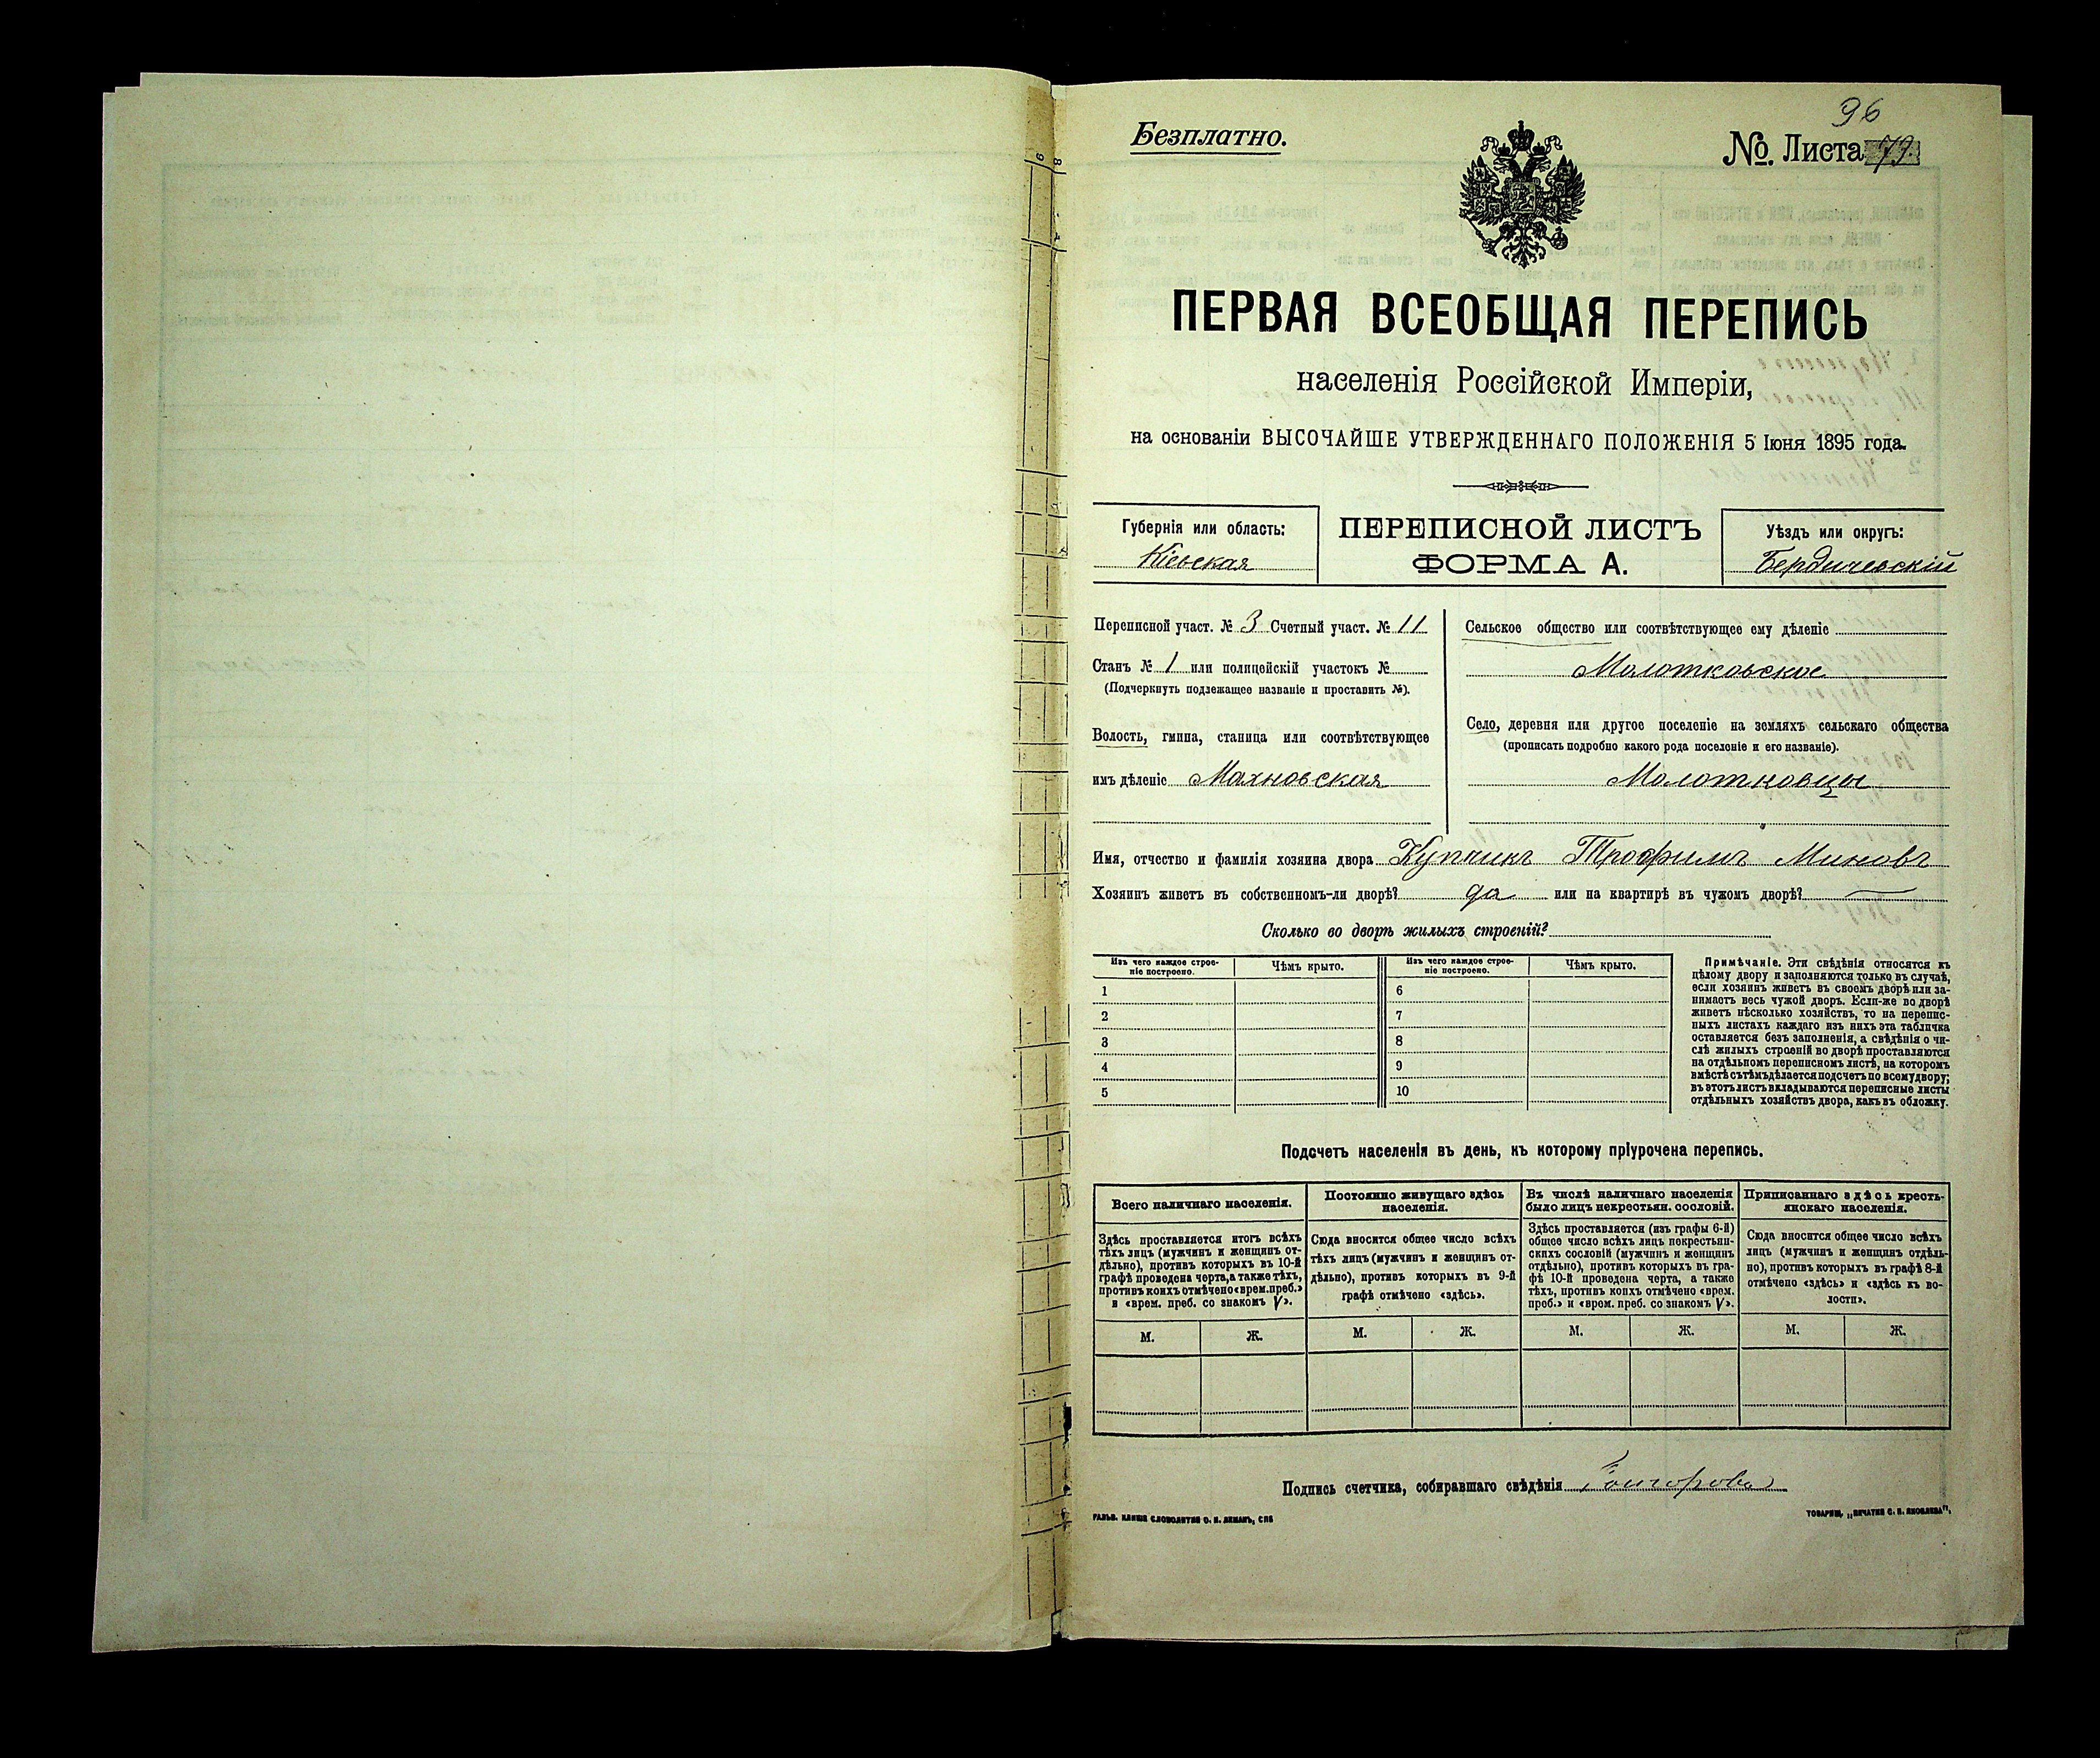 96
Безплатно.
№. Листа 79.
ПЕРВАЯ ВСЕОБЩАЯ ПЕРЕПИСЬ
населенія Россійской Имперіи,
на основаніи ВЫСОЧАЙШЕ УТВЕРЖДЕННАГО ПОЛОЖЕНІЯ 5 Іюня 1895 года.
Губернія или область:
Кіевская
ПЕРЕПИСНОЙ ЛИСТЪ
ФОРМА А.
Уѣздъ или округъ:
Бердичевскій
Переписной участ. № 3 Счетный участ. № 11
Станъ № 1 или полицейскій участокъ №
(Подчеркнуть подлежащее названіе и проставить №).
Волость, гмина, станица или соотвѣтствующее
имъ дѣленіе Махновская
Сельское общество или соотвѣтствующее ему дѣленіе
Молотковское
Село, деревня или другое поселеніе на земляхъ сельскаго общества
(прописать подробно какого рода поселеніе и его названіе).
Молотковцы
Имя, отчество и фамилія хозяина двора Купчикъ Трофимъ Миновъ
Хозяинъ живетъ въ собственномъ-ли дворѣ? да или на квартирѣ въ чужомъ дворѣ? —
Сколько во дворѣ жилыхъ строеній?
Изъ чего каждое строе-
ніе построено.
Чѣмъ крыто.
Изъ чего каждое строе-
ніе построено.
Чѣмъ крыто.
1
6
2
7
3
8
4
9
5
10
Примѣчаніе. Эти свѣдѣнія относятся къ
цѣлому двору и заполняются только въ случаѣ,
если хозяинъ живетъ въ своемъ дворѣ или за-
нимаетъ весь чужой дворъ. Если-же во дворѣ
живетъ нѣсколько хозяйствъ, то на перепис-
ныхъ листахъ каждаго изъ нихъ эта табличка
оставляется безъ заполненія, а свѣдѣнія о чи-
слѣ жилыхъ строеній во дворѣ проставляются
на отдѣльномъ переписномъ листѣ, на которомъ
вмѣстѣ съ тѣмъ дѣлается подсчетъ по всему двору;
въ этотъ листъ вкладываются переписные листы
отдѣльныхъ хозяйствъ двора, какъ въ обложку.
Подсчетъ населенія въ день, къ которому пріурочена перепись.
Всего наличнаго населенія.
Здѣсь проставляется итогъ всѣхъ
тѣхъ лицъ (мужчинъ и женщинъ от-
дѣльно), противъ которыхъ въ 10-й
графѣ проведена черта, а также тѣхъ,
противъ коихъ отмѣчено «врем. преб.»
и «врем. преб. со знакомъ V».
Постоянно живущаго здѣсь
населенія.
Сюда вносится общее число всѣхъ
тѣхъ лицъ (мужчинъ и женщинъ от-
дѣльно), противъ которыхъ въ 9-й
графѣ отмѣчено «здѣсь».
Въ числѣ наличнаго населенія
было лицъ некрестьян. сословій.
Здѣсь проставляется (изъ графы 6-й)
общее число всѣхъ лицъ некрестьян-
скихъ сословій (мужчинъ и женщинъ
отдѣльно), противъ которыхъ въ гра-
фѣ 10-й проведена черта, а также
тѣхъ, противъ коихъ отмѣчено «врем.
преб.» и «врем. преб. со знакомъ V».
Приписаннаго здѣсь кресть-
янскаго населенія.
Сюда вносится общее число всѣхъ
лицъ (мужчинъ и женщинъ отдѣль-
но), противъ которыхъ въ графѣ 8-й
отмѣчено «здѣсь» и «здѣсь къ во-
лости».
М. Ж. М. Ж. М. Ж. М. Ж.
Подпись счетчика, собиравшаго свѣдѣнія
ГАЛЬВ. КЛИШЕ СЛОВОЛИТНИ О. И. ЛЕМАНЪ, СПБ
ТОВАРИЩ. „ПЕЧАТНЯ С. П. ЯКОВЛЕВА".